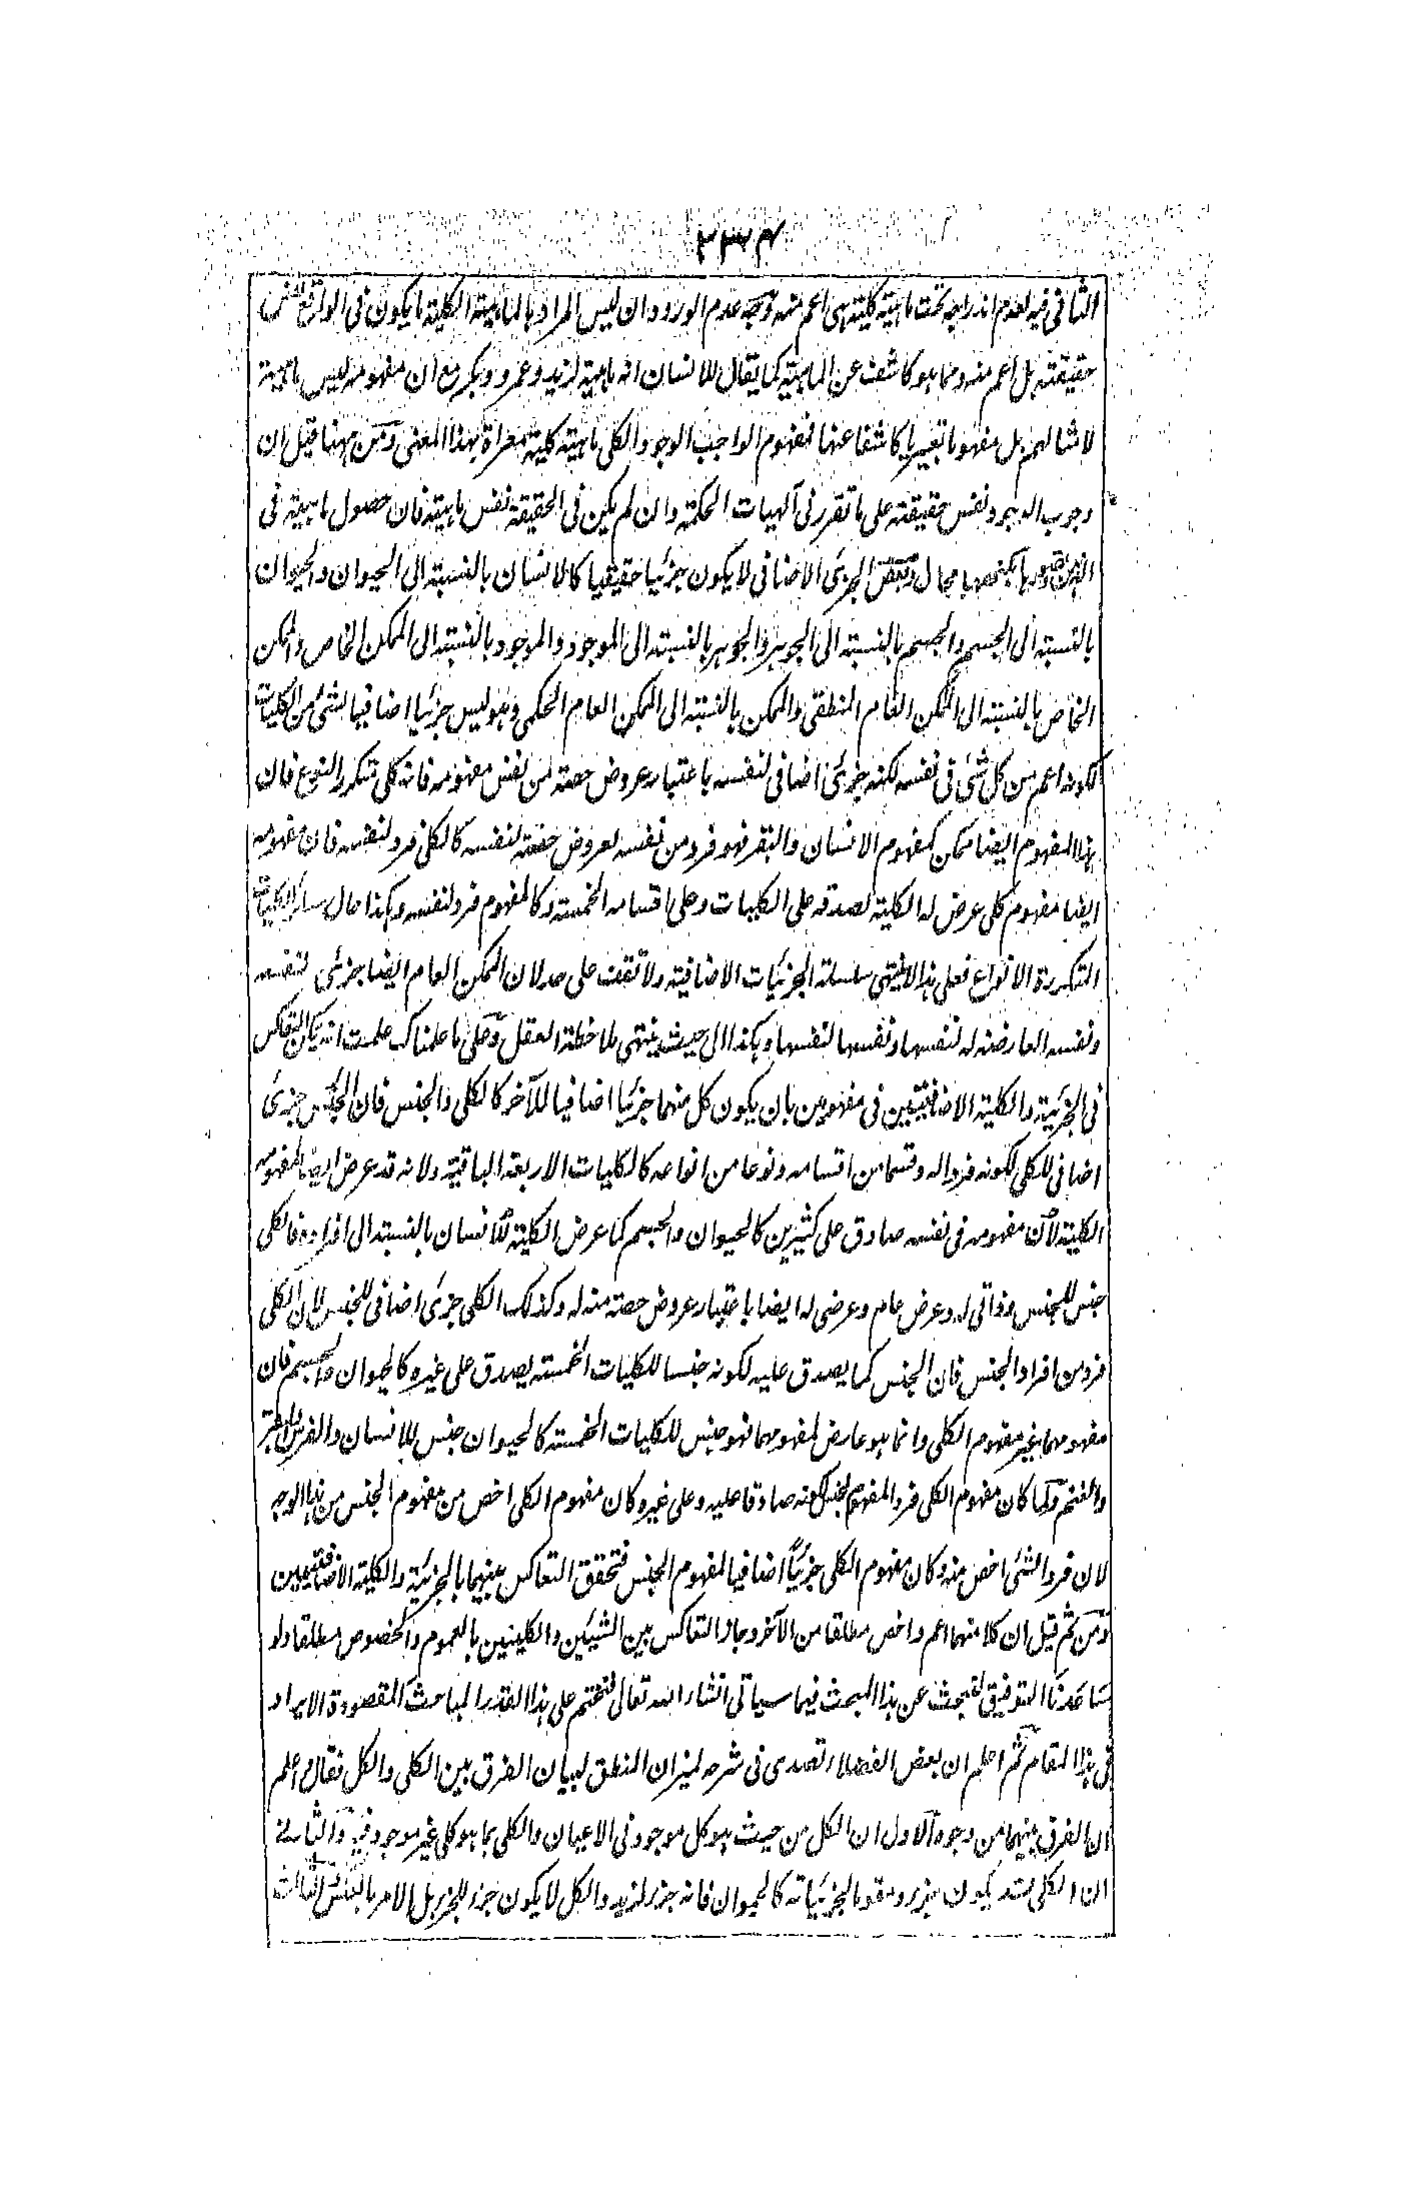 ٢٣٤
الثانى فيه لعدم اندراجه تحت ماهية كلية هى اعم منه وجه عدم الورود ان ليس المراد بالماهية الكلية ما يكون فى الواقع نفس
حقيقته بل اعم منه ومما هو كاشف عن الماهية كما يقال للانسان انه ماهية لزيد وعمرو وبكر مع ان مفهومه ليس ماهية
لا شالهم بل مفهوما تعبيريا كاشفا عنها فمفهوم الواجب الوجود الكلى ماهية كلية معراة بهذا المعنى ومن ههنا قيل ان
وجوب الوجود نفس حقيقته على ما تقرر فى آلهيات الحكمة وان لم يكن فى الحقيقة نفس ماهيته فان حصول ماهيته فى
الذهن وتصورها بكنهها محال وبعض الجزئى الاضافى لا يكون جزئيا حقيقيا كالانسان بالنسبة الى الحيوان والحيوان
بالنسبة الى الجسم والجسم بالنسبة الى الجوهر والجوهر بالنسبة الى الموجود والموجود بالنسبة الى الممكن الخاص والممكن
الخاص بالنسبة الى الممكن العام المنطقى والممكن بالنسبة الى الممكن العام الحكمى وهو ليس جزئيا اضافيا لشئ من الكليات
لكونه اعم من كل شئ فى نفسه لكنه جزئى اضافى لنفسه باعتبار عروض حصة من نفس مفهومه فانه كلى متكرر النوع فان
هذا المفهوم ايضا ممكن كمفهوم الانسان والبقر فهو فرد من نفسه لعروض حصته لنفسه كالكلى فرد لنفسه فان مفهومه
ايضا مفهوم كلى عرض له الكلية لصدقه على الكليات وعلى اقسامه الخمسة وكالمفهوم فرد لنفسه وهكذا حال سائر الكليات
المتكررة الانواع فعلى هذا لا ينتهى سلسلة الجزئيات الاضافية ولا تقف على حد لان الممكن العام ايضا جزئى لنفسه
ونفسه العارضة له لنفسها ونفسها لنفسها وهكذا الى حيث ينتهى ملاحظة العقل وعلى ما علمناك علمت انه يمكن التعاكس
فى الجزئية والكلية الاضافيتين فى مفهومين بان يكون كل منهما جزئيا اضافيا للآخر كالكلى والجنس فان الجنس جزئى
اضافى للكلى لكونه فردا له وقسما من اقسامه ونوعا من انواعه كالكليات الاربعة الباقية ولانه قد عرض ايضا لمفهومه
الكلية لان مفهومه فى نفسه صادق على كثيرين كالحيوان والجسم كما عرض الكلية للانسان بالنسبة الى افراده فالكلى
جنس للجنس وذاتى له وعرض عام وعرضى له ايضا باعتبار عروض حصة منه له وكذلك الكلى جزئى اضافى للجنس لان الكلى
فرد من افراد الجنس فان الجنس كما يصدق عليه لكونه جنسا للكليات الخمسة يصدق على غيره كالحيوان والجسم فان
مفهومهما غير مفهوم الكلى وانما هو عارض لمفهومهما فهو جنس للكليات الخمسة كالحيوان جنس للانسان والفرس والبقر
والغنم ولما كان مفهوم الكلى فردا لمفهوم الجنس لكونه صادقا عليه وعلى غيره كان مفهوم الكلى اخص من مفهوم الجنس من هذا الوجه
لان فرد الشئ اخص منه وكان مفهوم الكلى جزئيا اضافيا لمفهوم الجنس فتحقق التعاكس بينهما بالجزئية والكلية الاضافيتين
ومن ثم قيل ان كلا منهما اعم واخص مطلقا من الآخر وجاز التعاكس بين الشيئين والكليين بالعموم والخصوص مطلقا ولو
ساعدنا التوفيق لنبحث عن هذا البحث فيما سياتى انشاء الله تعالى فنختم على هذا القدر المباحث المقصودة الايراد
فى هذا المقام ثم اعلم ان بعض الفضلاء تصدى فى شرحه لميزان المنطق لبيان الفرق بين الكلى والكل فقال اعلم
ان الفرق بينهما من وجوه الاول ان الكل من حيث هو كل موجود فى الاعيان والكلى بما هو كلى غير موجود فيه والثانى
ان الكلى قد يكون جزء ومقوما لجزئياته كالحيوان فانه جزء لزيد والكل لا يكون جزء للجزء بل الامر بالعكس الثالث